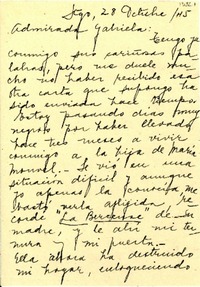 Sgo, 28 Octubre/45
Admirada Gabriela:
Tengo ya
conmigo sus cariñosas pa-
labras, pero me duele mu-
cho no haber recibido esa
otra carta que supongo ha
sido enviada hace tiempo.
Estoy pasando días muy
negros por haber llevado
hace tres meses a vivir
conmigo a la hija de María
Monvel. Se vió en una
situación difícil y aunque
yo apenas la conocía, me
bastó verla afligida, re-
cordé "La Berceuse" de su
madre, y le abrí mi ter-
nura y mi puerta.
Ella ahora ha destruido
mi hogar, enloqueciendo